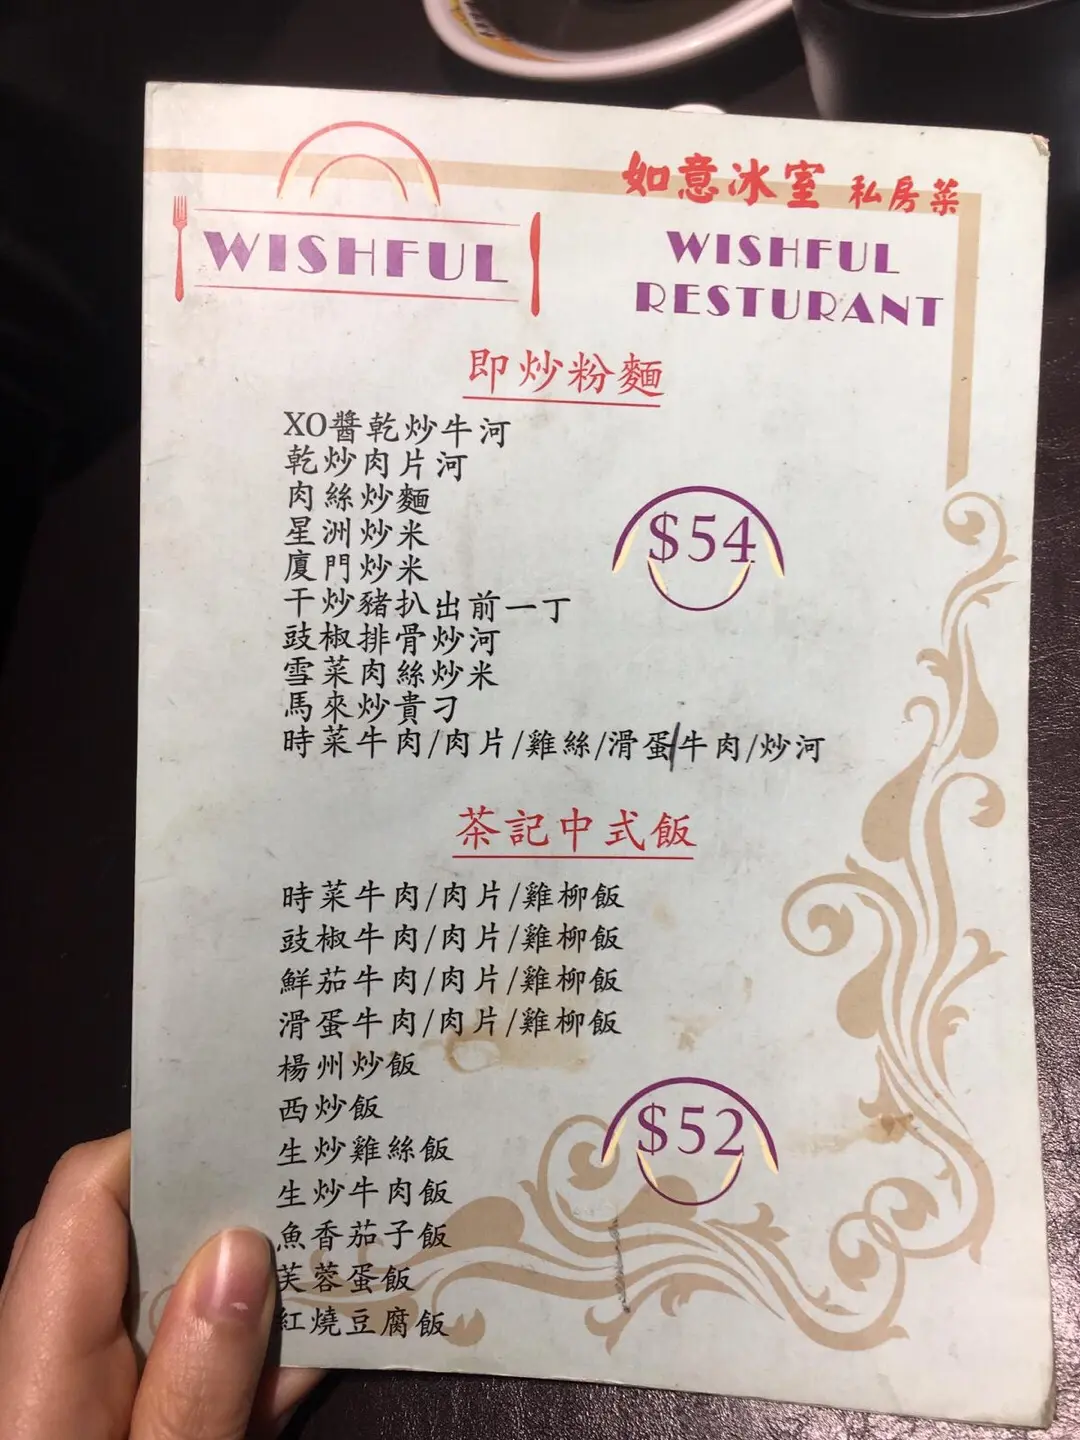 如意冰室 私房菜
WISHFUL
WISHFUL
RESTURANT
即炒粉麵
XO醬乾炒牛河
乾炒肉片河
肉絲炒麵
星洲炒米
廈門炒米
干炒豬扒出前一丁
豉椒排骨炒河
雪菜肉絲炒米
馬來炒貴刁
時菜牛肉/肉片/雞絲/滑蛋/牛肉/炒河
$54
茶記中式飯
時菜牛肉/肉片/雞柳飯
豉椒牛肉/肉片/雞柳飯
鮮茄牛肉/肉片/雞柳飯
滑蛋牛肉/肉片/雞柳飯
楊州炒飯
西炒飯
生炒雞絲飯
生炒牛肉飯
魚香茄子飯
芙蓉蛋飯
紅燒豆腐飯
$52